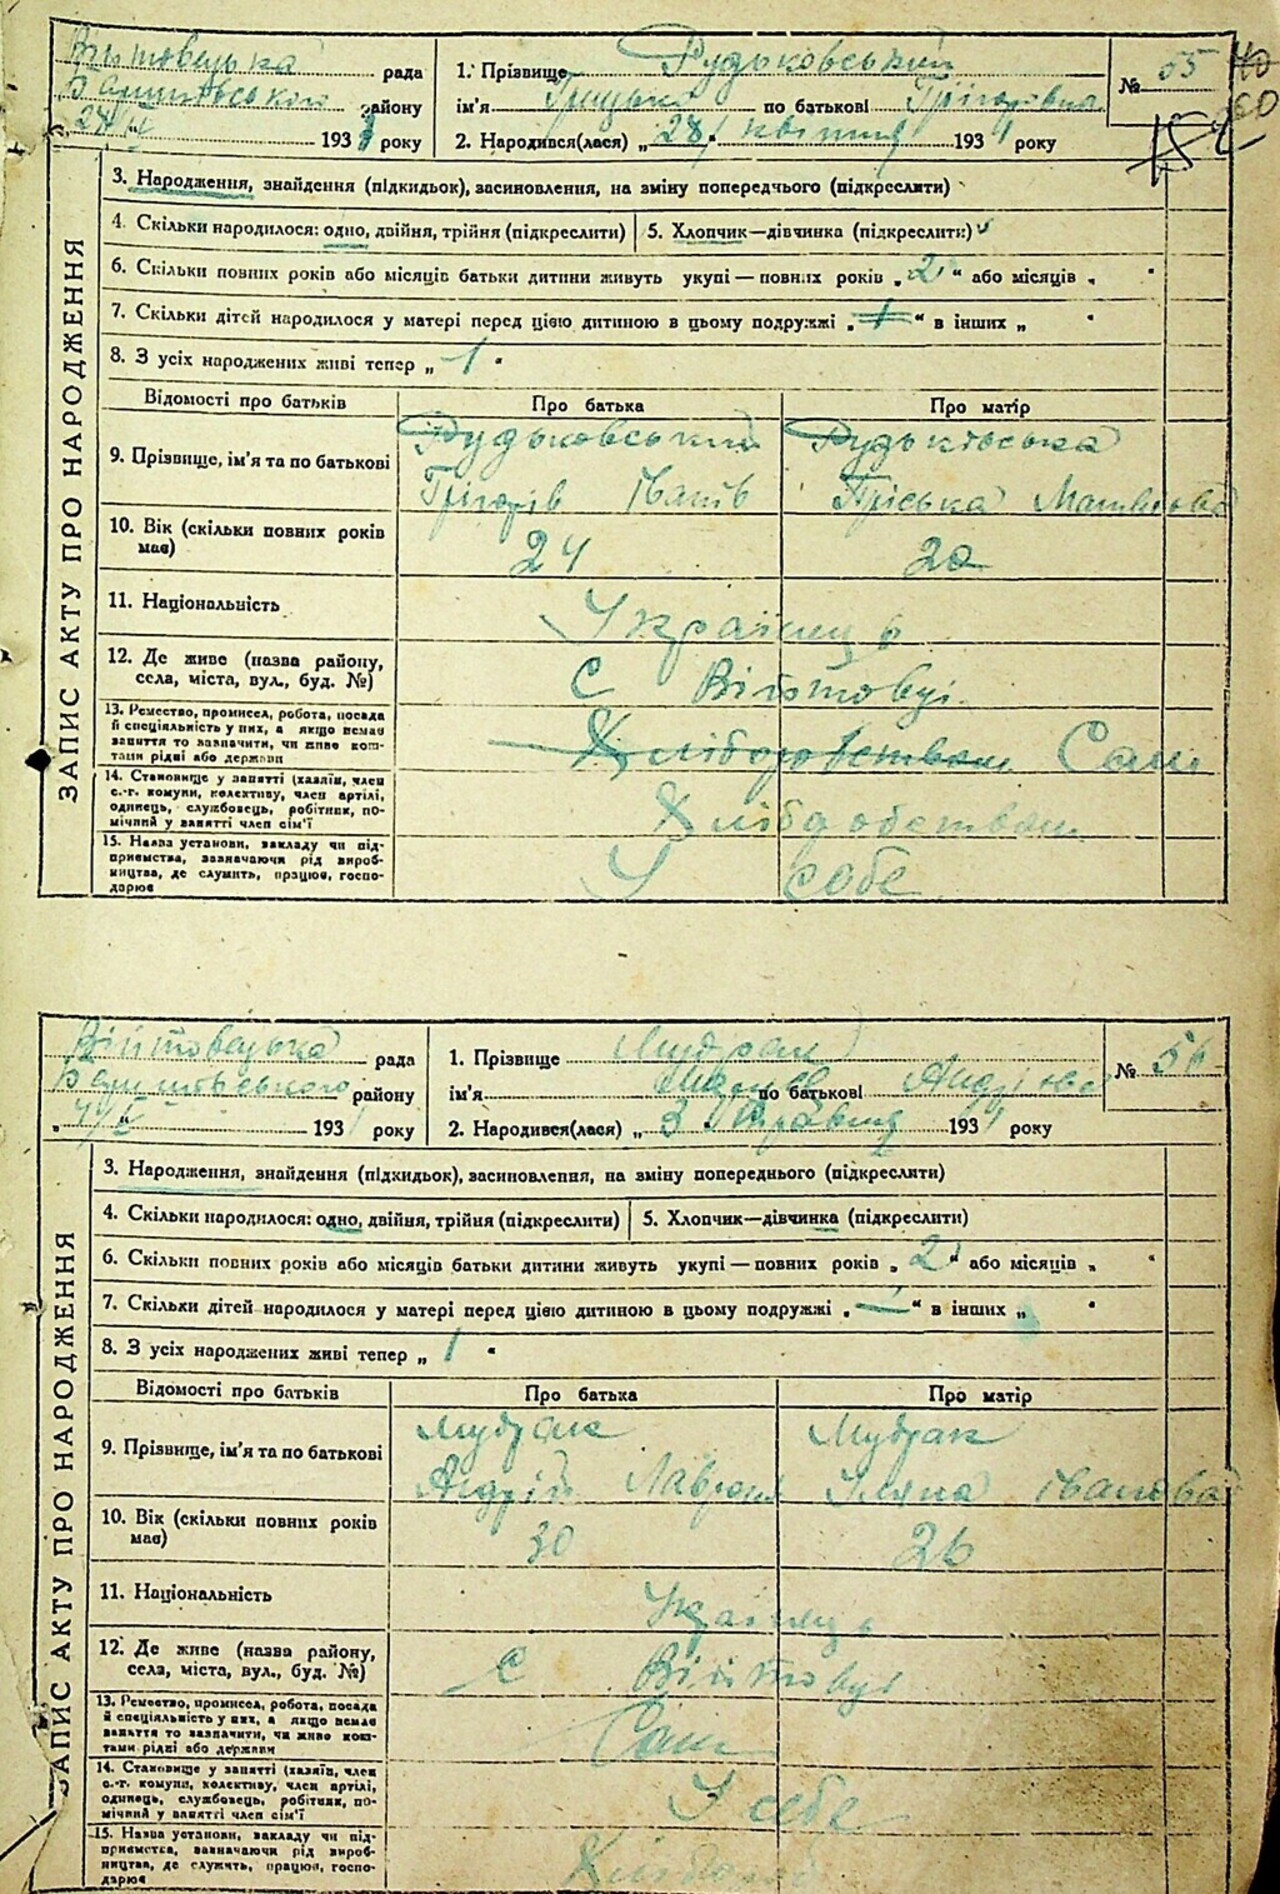 Війтовецька рада
Баришівського району
24/IV 1931 року
1. Прізвище Рудьковський
ім'я Грицько по батькові Грігорівна
2. Народився(лася) „28" квітня 1931 року
№ 55
ЗАПИС АКТУ ПРО НАРОДЖЕННЯ
3. Народження, знайдення (підкидьок), засиновлення, на зміну попереднього (підкреслити)
4. Скільки народилося: одно, двійня, трійня (підкреслити) 5. Хлопчик—дівчинка (підкреслити)
6. Скільки повних років або місяців батьки дитини живуть укупі — повних років „2" або місяців „ "
7. Скільки дітей народилося у матері перед цією дитиною в цьому подружжі „1" в інших „ "
8. З усіх народжених живі тепер „1"
Відомості про батьків Про батька Про матір
9. Прізвище, ім'я та по батькові
Рудьковський Рудьківська
Грігорів Іванів Пріська Матвієва
10. Вік (скільки повних років має) 24 20
11. Національність Українці
12. Де живе (назва району, села, міста, вул., буд. №) С Війтовці
13. Ремество, промисел, робота, посада
й спеціяльність у них, а якщо немає
заняття то зазначити, чи живе кош-
тами рідні або держави
Хліборобством Самі
14. Становище у занятті (хазяїн, член
с.-г. комуни, колективу, член артілі,
одинець, службовець, робітник, по-
мічний у занятті член сім'ї
15. Назва установи, закладу чи під-
приємства, зазначаючи рід вироб-
ництва, де служить, працює, госпо-
дарює
У себе
Війтовецька рада
Баришівського району
1931 року
1. Прізвище Мудрак
ім'я по батькові Андрієва
2. Народився(лася) „3" Травня 1931 року
№ 56
ЗАПИС АКТУ ПРО НАРОДЖЕННЯ
3. Народження, знайдення (підкидьок), засиновлення, на зміну попереднього (підкреслити)
4. Скільки народилося: одно, двійня, трійня (підкреслити) 5. Хлопчик—дівчинка (підкреслити)
6. Скільки повних років або місяців батьки дитини живуть укупі — повних років „2" або місяців „ "
7. Скільки дітей народилося у матері перед цією дитиною в цьому подружжі „—" в інших „ "
8. З усіх народжених живі тепер „1"
Відомості про батьків Про батька Про матір
9. Прізвище, ім'я та по батькові
Мудрак Мудрак
Андрій Уляна Іванова
10. Вік (скільки повних років має) 30 26
11. Національність Українці
12. Де живе (назва району, села, міста, вул., буд. №) С Війтовці
13. Ремество, промисел, робота, посада
й спеціяльність у них, а якщо немає
заняття то зазначити, чи живе кош-
тами рідні або держави
Самі
14. Становище у занятті (хазяїн, член
с.-г. комуни, колективу, член артілі,
одинець, службовець, робітник, по-
мічний у занятті член сім'ї
У себе
15. Назва установи, закладу чи під-
приємства, зазначаючи рід вироб-
ництва, де служить, працює, госпо-
дарює